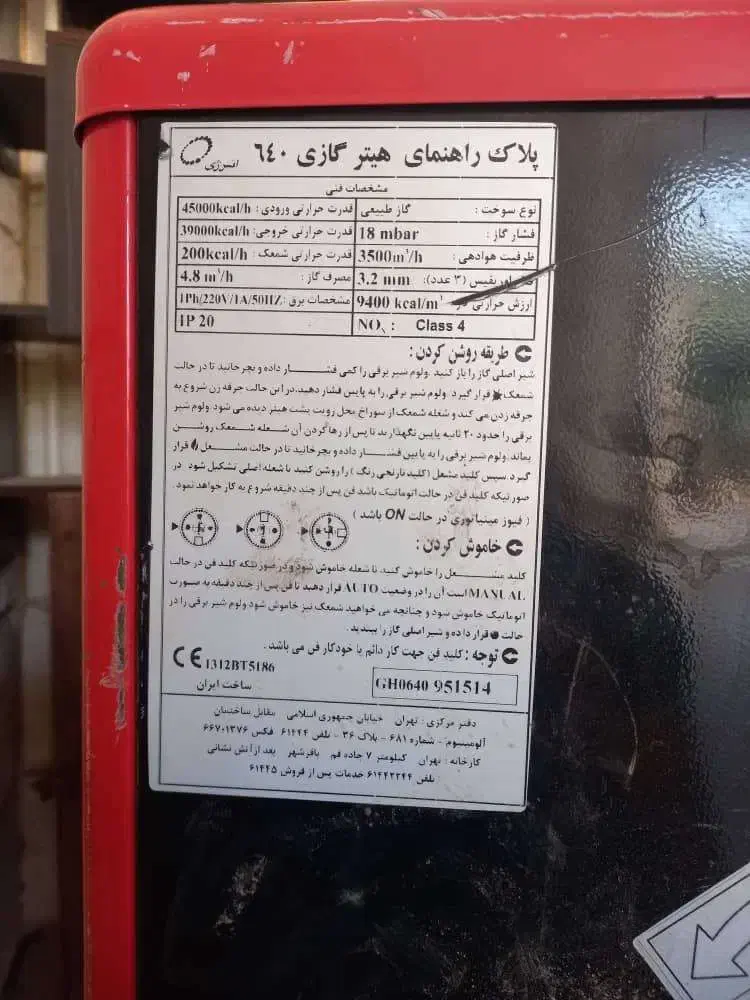 پلاک راهنمای هیتر گازی ٦٤٠
انرژی
مشخصات فنی
نوع سوخت : گاز طبیعی قدرت حرارتی ورودی : 45000kcal/h
فشار گاز : 18 mbar قدرت حرارتی خروجی : 39000kcal/h
ظرفیت هوادهی : 3500m³/h قدرت حرارتی شمعک : 200kcal/h
اوریفیس (۳ عدد): 3.2 mm مصرف گاز : 4.8 m³/h
ارزش حرارتی 9400 kcal/m³ مشخصات برق : 1Ph/220V/1A/50HZ
NOx : Class 4 IP 20
طریقه روشن کردن :
شیر اصلی گاز را باز کنید .ولوم شیر برقی را کمی فشار داده و بچرخانید تا در حالت
شمعک قرار گیرد .ولوم شیر برقی را به پایین فشار دهید.در این حالت جرقه زن شروع به
جرقه زدن می کند و شعله شمعک از سوراخ محل رویت پشت هیتر دیده می شود .ولوم شیر
برقی را حدود ۲۰ ثانیه پایین نگهدارید تا پس از رها کردن آن شعله شمعک روشن
بماند .ولوم شیر برقی را به پایین فشار داده و بچرخانید تا در حالت مشعل قرار
گیرد .سپس کلید مشعل (کلید نارنجی رنگ ) را روشن کنید تا شعله اصلی تشکیل شود .در
صورتیکه کلید فن در حالت اتوماتیک باشد فن پس از چند دقیقه شروع به کار خواهد نمود.
( فیوز مینیاتوری در حالت ON باشد )
خاموش کردن :
کلید مشعل را خاموش کنید. تا شعله خاموش شود و در صورتیکه کلید فن در حالت
MANUAL است آن را در وضعیت AUTO قرار دهید تا فن پس از چند دقیقه به صورت
اتوماتیک خاموش شود و چنانچه می خواهید شمعک نیز خاموش شود ولوم شیر برقی را در
حالت ● قرار داده و شیر اصلی گاز را ببندید .
توجه : کلید فن جهت کار دائم یا خودکار فن می باشد .
CE 1312BT5186
GH0640 951514
ساخت ایران
دفتر مرکزی : تهران خیابان جمهوری اسلامی مقابل ساختمان
آلومینیوم - شماره ۶۸۱ - پلاک ۳۶ - تلفن ۶۱۴۴۴ فکس ۶۶۷۰۱۳۷۶
کارخانه : تهران کیلومتر ۷ جاده قم باقرشهر بعد از آتش نشانی
تلفن ۶۱۴۴۲۲۴۴ خدمات پس از فروش ۶۱۴۴۵